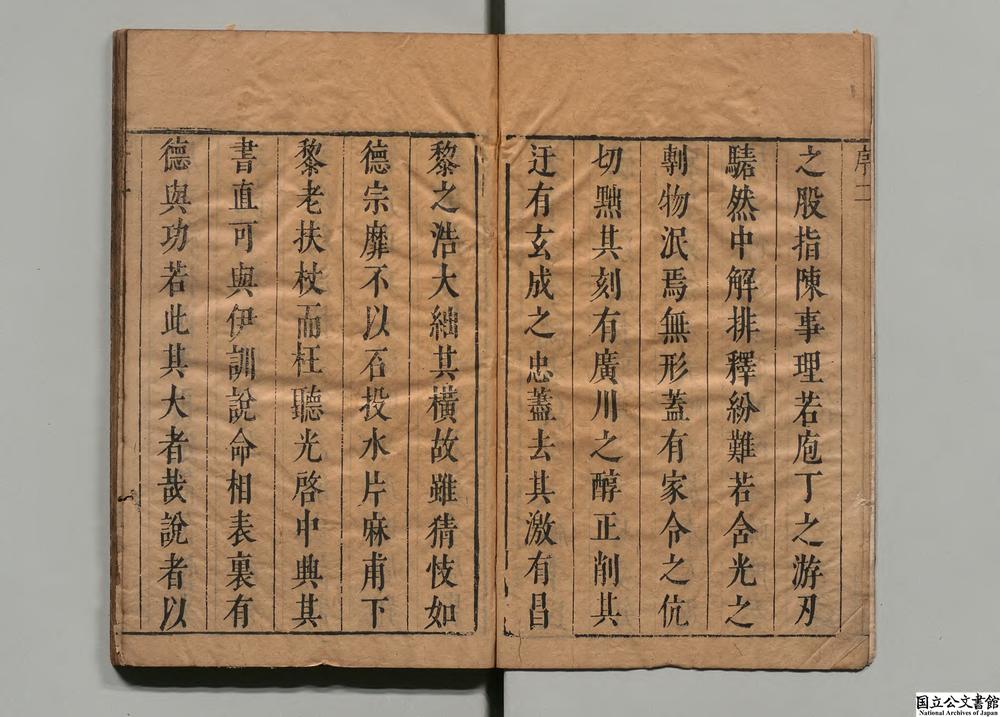 之股指陳事理若庖丁之游刃
騞然中解排釋紛難若含光之
剸物泯焉無形蓋有家令之伉
切黜其刻有廣川之醇正削其
迂有玄成之忠藎去其激有昌
黎之浩大絀其橫故雖猜忮如
德宗靡不以石投水片麻甫下
黎老扶杖而枉聽光啓中興其
書直可與伊訓說命相表裏有
德與功若此其大者哉說者以
国立公文書館
National Archives of Japan